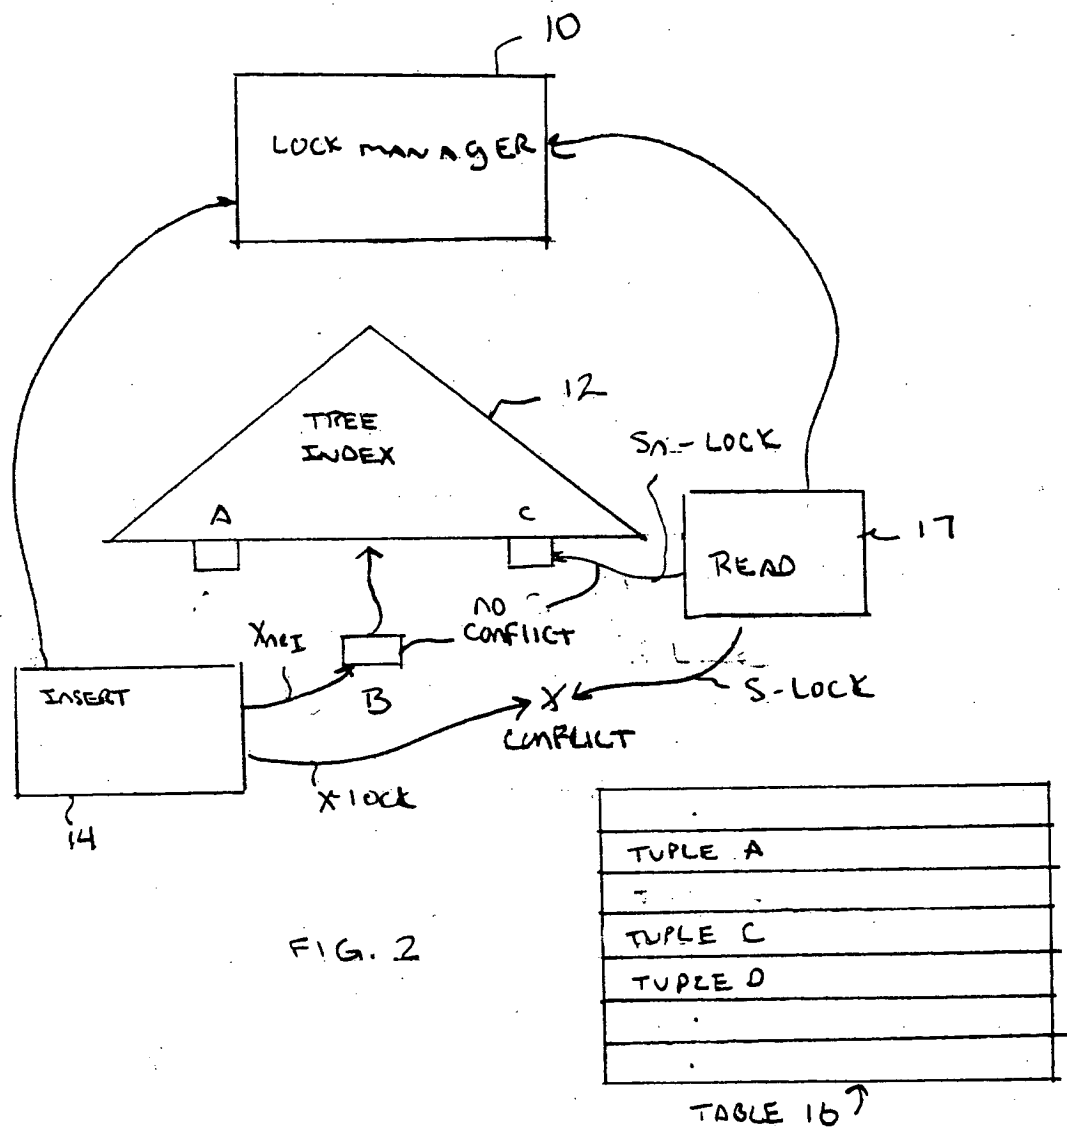 10
LOCK MANAGER
12
TREE
INDEX
A
C
LOCK
17
READ
NO
CONFLICT
INSERT
B
S-LOCK
X
CONFLICT
X-lock
14
TUPLE A
TUPLE C
TUPLE D
FIG. 2
TABLE 16